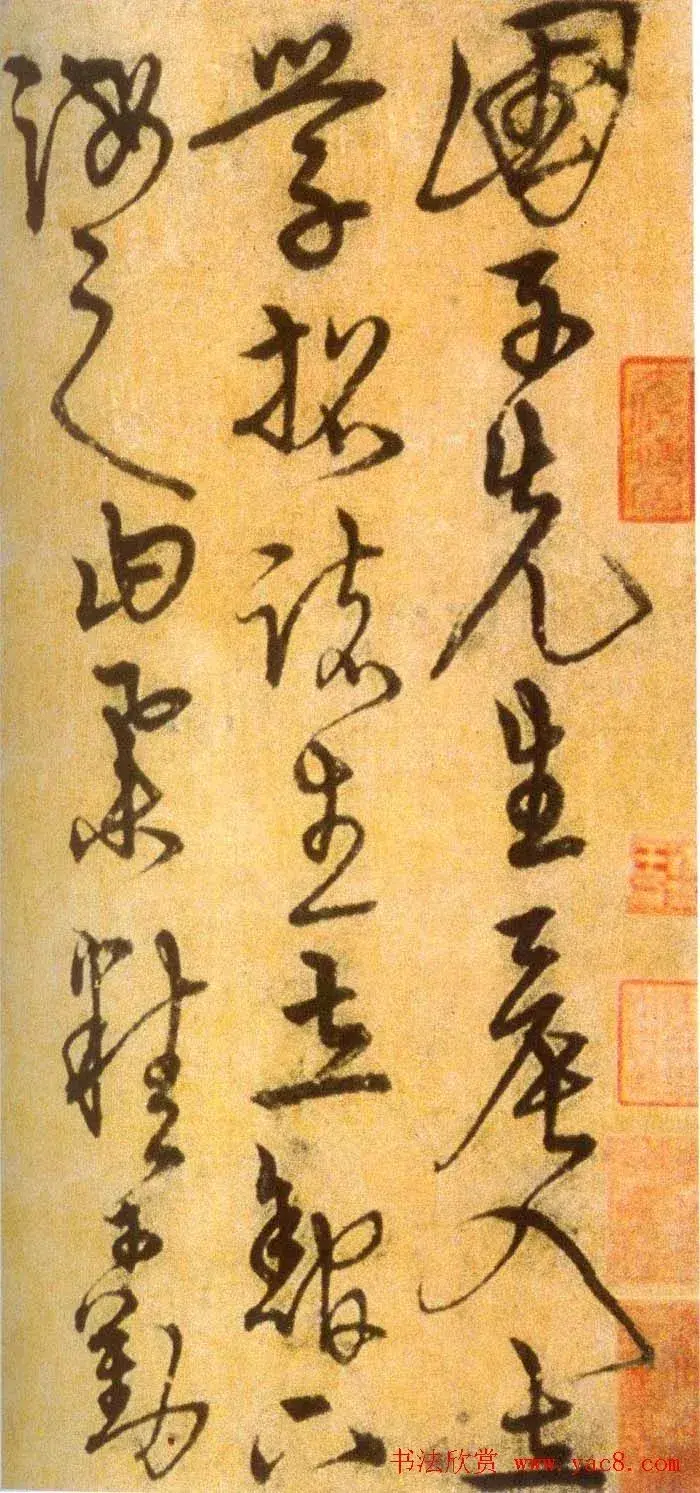 國子先生晨入太
學招諸生立館下
誨之曰業精于勤
书法欣赏 www.yac8.com